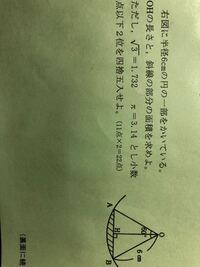 右図に半径6cmの円の一部をかいている。
OHの長さと，斜線の部分の面積を求めよ。
ただし，√3＝1.732　π＝3.14　とし小数
点以下2位を四捨五入せよ。(11点×2＝22点)
O
6cm
H
A
B
(裏面に続